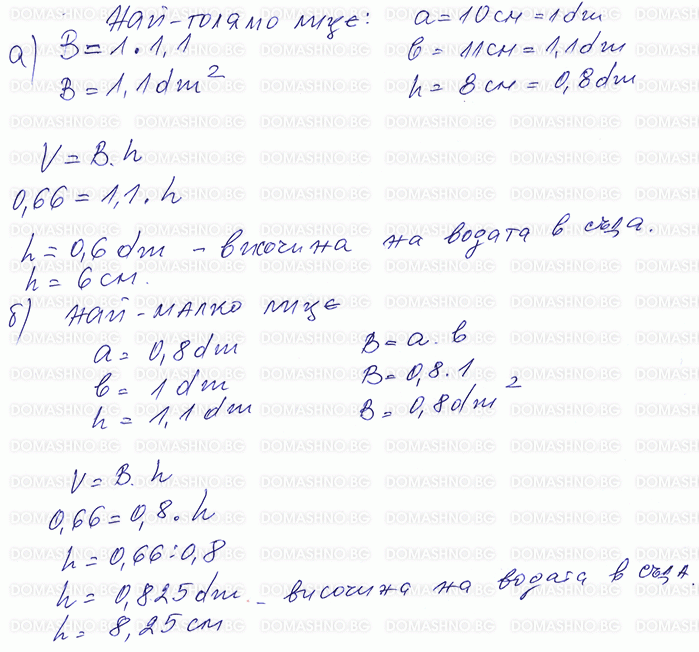 Най-голямо лице: a = 10 см = 1 dm
а) B = 1 . 1,1 в = 11 см = 1,1 dm
B = 1,1 dm² h = 8 см = 0,8 dm
V = B. h
0,66 = 1,1. h
h = 0,6 dm - височина на водата в съда.
h = 6 см.
б) Най-малко лице
a = 0,8 dm B = a. в
в = 1 dm B = 0,8. 1
h = 1,1 dm B = 0,8 dm²
V = B. h
0,66 = 0,8. h
h = 0,66 : 0,8
h = 0,825 dm - височина на водата в съда.
h = 8,25 см
DOMASHNO.BG